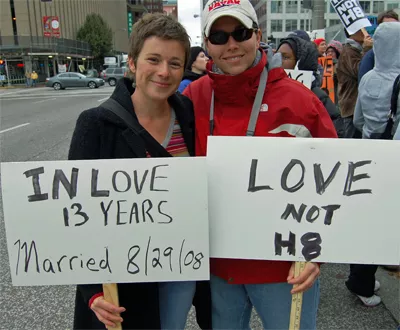 IN LOVE
13 YEARS
Married 8/29/08
LOVE
NOT
H8